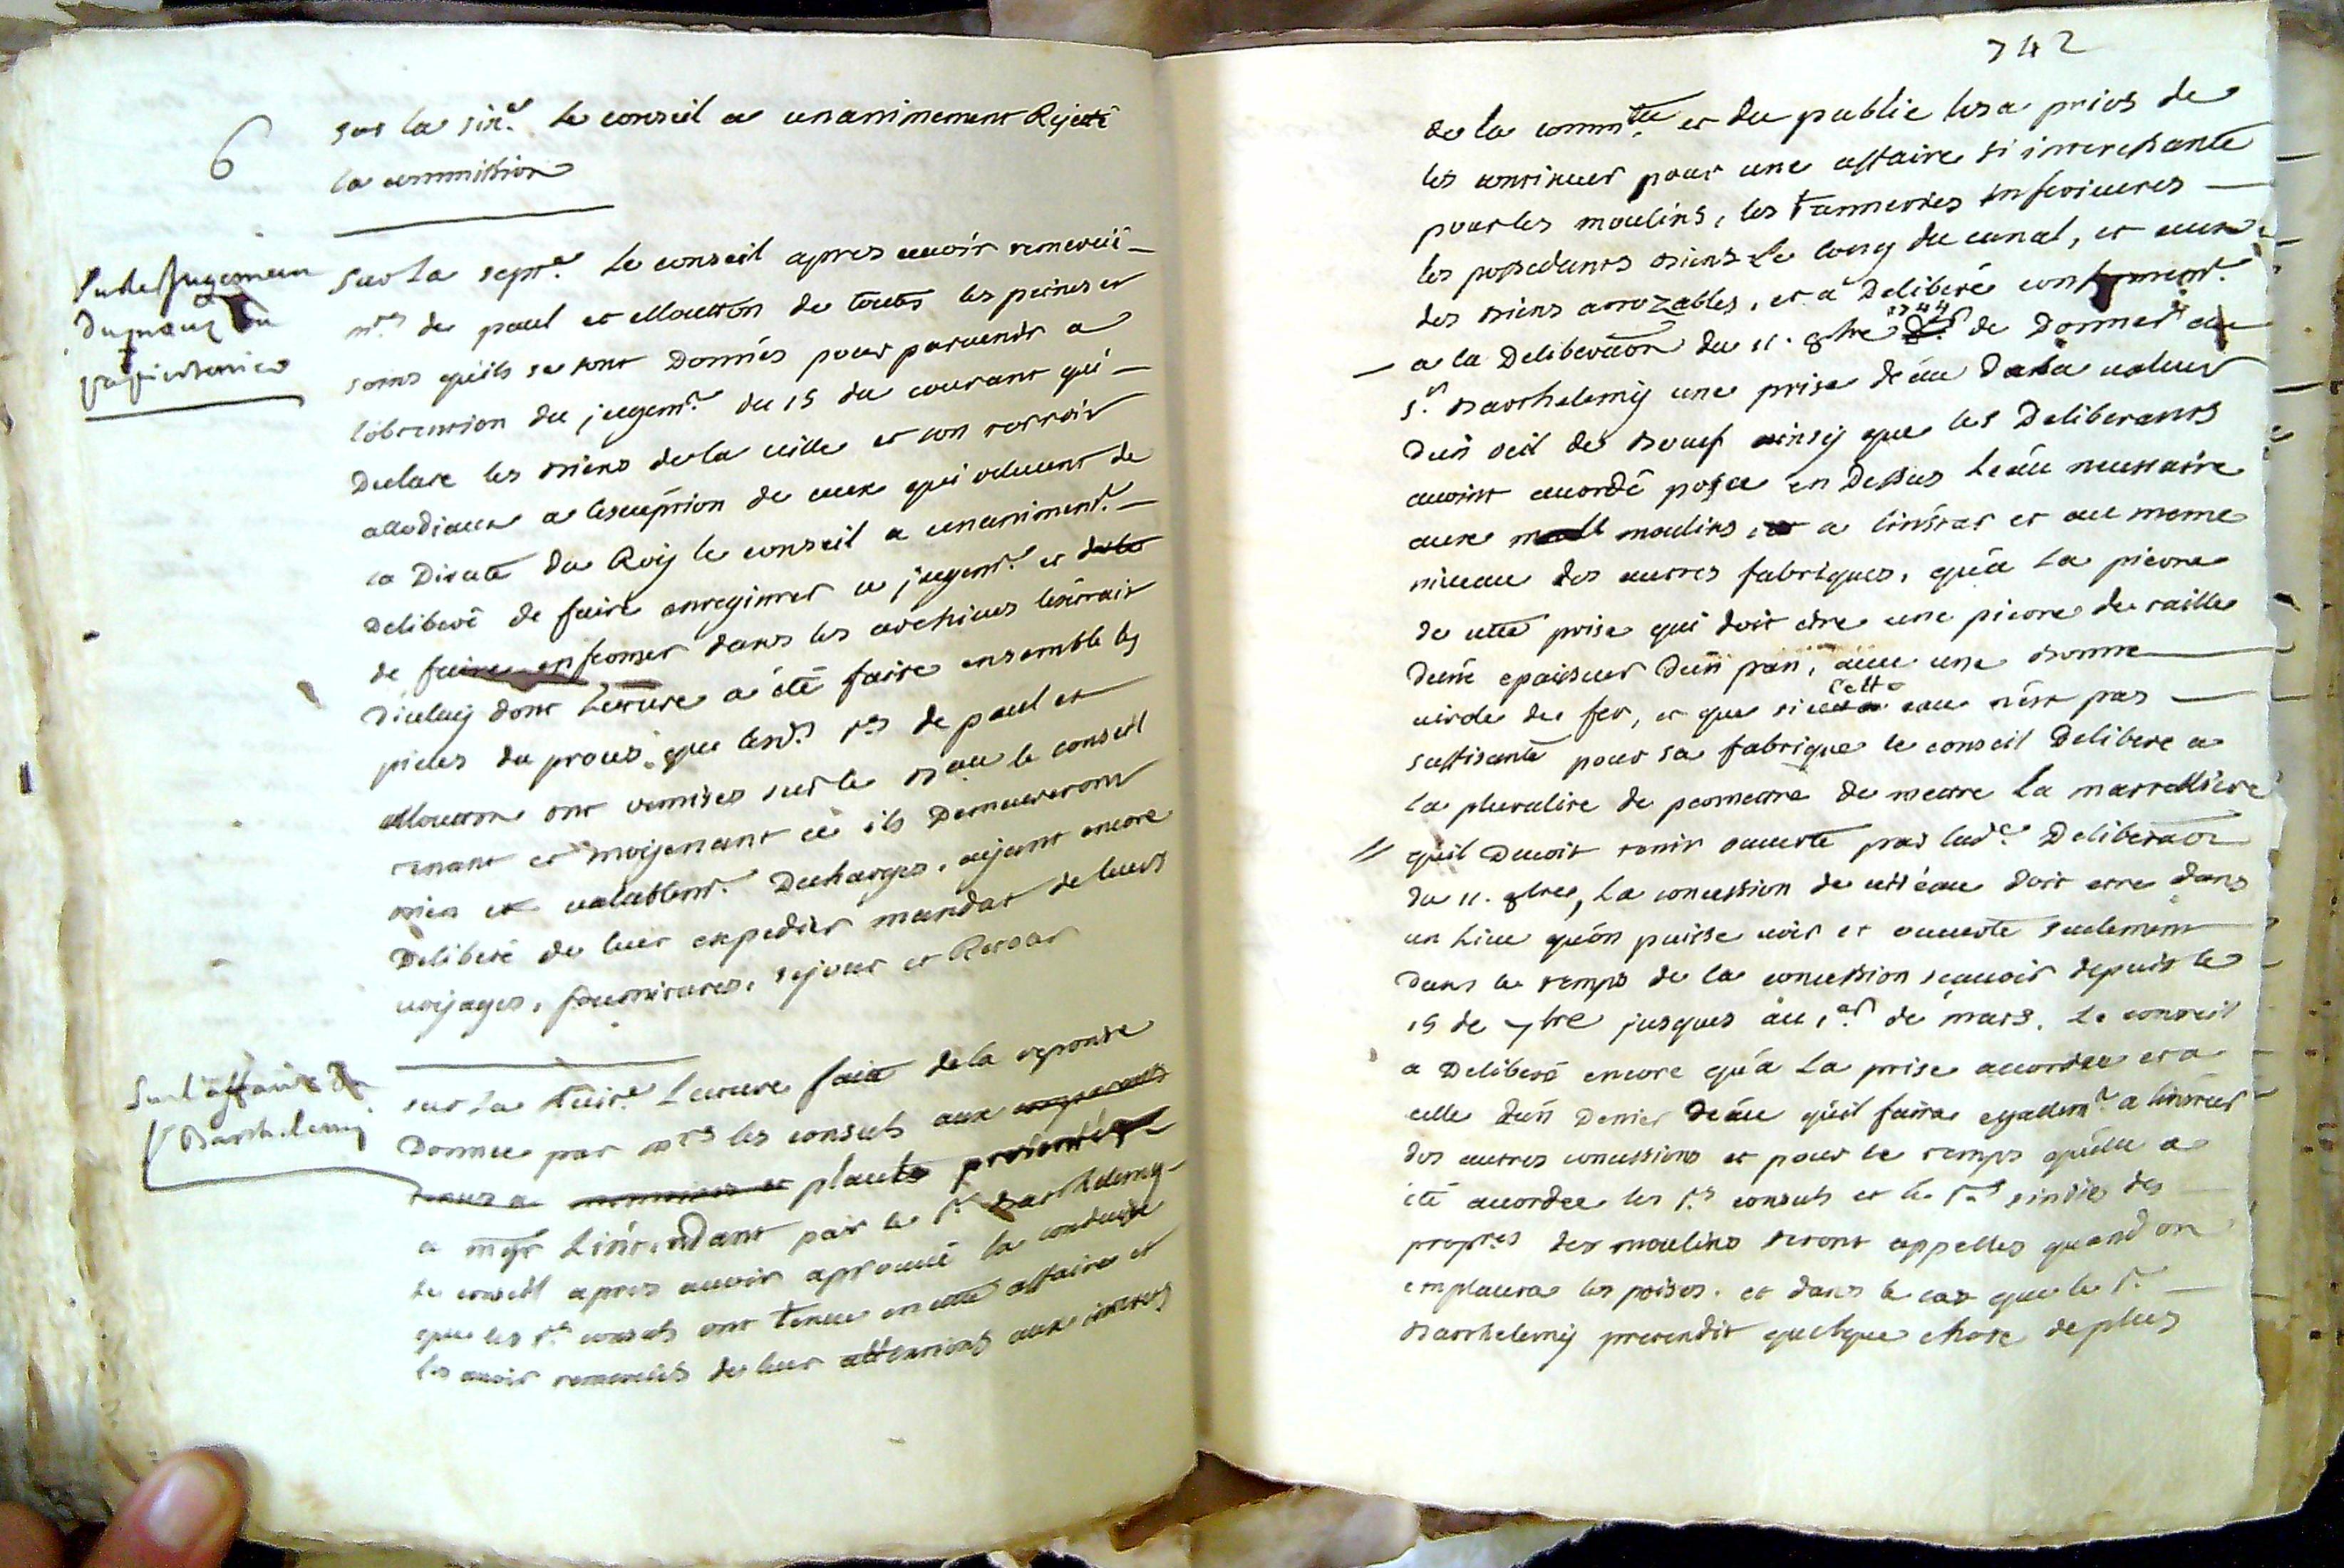 6
sur la six.e le conseil a unanimement Rejetté
la commission
Sur le Jugement
du
sur La sept.e le conseil apres avoir remercié
mrs de paul et Moutton de toutes les peines et
soins quils se sont Donnés pour parvenir a
lobtention du jugem.t du 15 du courant qui
Declare les biens de la ville et son terroir
allodiaux a lexception de ceux qui relevent de
la Directe du Roy le conseil a unaniment.
Deliberé de faire enregistrer ce jugem.t et
de faire enfermer dans les archives lextrait
dicluy dont Lecture a été faite ensemble les
pieces du procés que lesd.s srs de paul et
Moutton ont remises sur le bau le conseil
tenant et moyenant ce ils Demeureront
bien et valablem.t Decharges, ayant encore
Deliberé de leur expedier mandat de leurs
voyages, fournitures, sejour et Retour
Sur l'affaire de
Sr Barthelemy
sur La huit.e Lecture faite de la reponse
Donnée par mrs les consuls aux
placets presentés
a mgr Lintendant par le sr Barthelemy
Le conseil apres avoir aprouvé la conduite
que les srs consuls ont tenue en cette affaire et
les avoir remerciés de leur attentions aux interets
742
de la comm.té et du public les a priés de
les continuer pour une affaire si interessante
pour les moulins, les tanneries inferieures
les possedants biens Le long du canal, et aux
des biens arrozables, et a Deliberé conformem.t
a la Deliberaôn du 11. 8bre 1744 de Donner au
s.r Barthelemy une prise déau de la valeur
dun oeil de boeuf ainsy que les Deliberants
avoint acordé posée en Dessus Leau necessaire
aux moulins, a linstar et au meme
niveau des autres fabriques, qua la pierre
de cette prise qui doit etre une pierre de taille
dune epaisseur Dun pan, avec une bonne
circle de fer, et que si cette eau nest pas
suffisante pour sa fabrique le conseil Delibere a
la pluralite de permettre de mettre la martelliere
quil Devoit tenir ouverte par lad.e Deliberaôn
du 11. 8bre, La concession de cett eau doit etre dans
un Lieu quon puisse voir et ouverte seulement
dans le temps de la concession scavoir depuis le
15 de 7bre jusques au 1er de mars. Le conseil
a Deliberé encore qua la prise accordée et a
celle dun Denier deau quil faira egallem.t a linstar
des autres concessions et pour le temps quelle a
été accordée les srs consuls et les srs sindics des
propres des moulins seront appelles quand on
emplacera les prises. et dans le cas que le sr.
Barthelemy pretendit quelque chose de plus